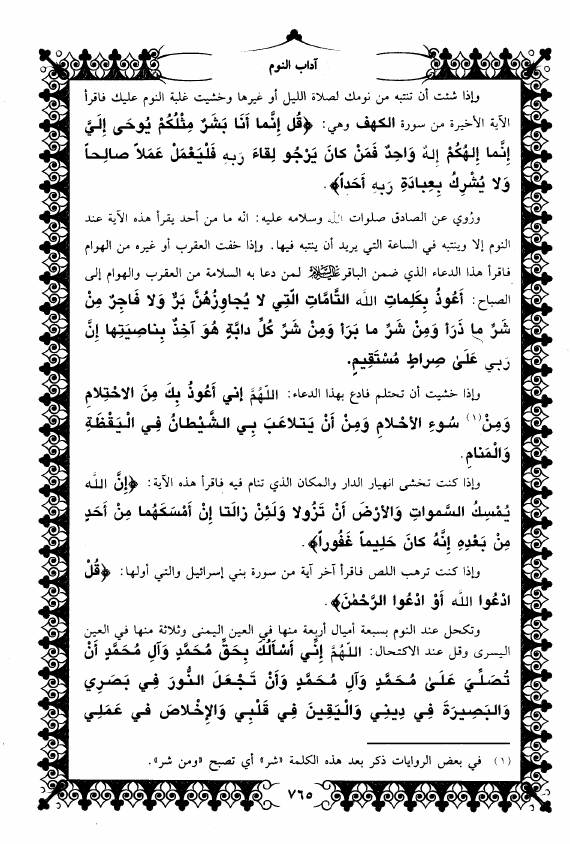 آداب النوم
وإذا شئت أن تنتبه من نومك لصلاة الليل أو غيرها وخشيت غلبة النوم عليك فاقرأ
الآية الأخيرة من سورة الكهف وهي: ﴿قُل إِنَّما أَنَا بَشَرٌ مِثْلُكُمْ يُوحَى إِلَيَّ
إِنَّما إِلهُكُمْ إِلهٌ وَاحِدٌ فَمَنْ كانَ يَرْجُو لِقاءَ رَبِهِ فَلْيَعْمَلْ عَمَلاً صالِحاً
وَلا يُشْرِكْ بِعِبادَةِ رَبِهِ أَحَداً﴾.
ورُوي عن الصادق صلوات الله وسلامه عليه: انّه ما من أحد يقرأ هذه الآية عند
النوم إلا وينتبه في الساعة التي يريد أن ينتبه فيها. وإذا خفت العقرب أو غيره من الهوام
فاقرأ هذا الدعاء الذي ضمن الباقر عليه السلام لمن دعا به السلامة من العقرب والهوام إلى
الصباح: أَعُوذُ بِكَلِماتِ الله التَّامَّاتِ الَّتِي لا يُجاوِزُهُنَّ بَرٌّ وَلا فَاجِرٌ مِنْ
شَرِّ ما ذَرَأَ وَمِنْ شَرِّ ما بَرَأَ وَمِنْ شَرِّ كُلِّ دابَّةٍ هُوَ آخِذٌ بِناصِيَتِها إِنَّ
رَبِي عَلَىٰ صِراطٍ مُسْتَقِيمٍ.
وإذا خشيت أن تحتلم فادع بهذا الدعاء: اللهُمَّ إِني أَعُوذُ بِكَ مِنَ الاحْتِلامِ
وَمِنْ(١) سُوءِ الأحْلامِ وَمِنْ أَنْ يَتَلاعَبَ بِي الشَّيْطانُ فِي الْيَقْظَةِ
وَالْمَنامِ.
وإذا كنت تخشى انهيار الدار والمكان الذي تنام فيه فاقرأ هذه الآية: ﴿إِنَّ الله
يُمْسِكُ السَّمواتِ وَالأرْضَ أَنْ تَزُولا وَلَئِنْ زالَتا إِنْ أَمْسَكَهُما مِنْ أَحَدٍ
مِنْ بَعْدِهِ إِنَّهُ كانَ حَلِيماً غَفُوراً﴾.
وإذا كنت ترهب اللص فاقرأ آخر آية من سورة بني إسرائيل والتي أولها: ﴿قُلْ
ادْعُوا الله أَوْ ادْعُوا الرَّحْمٰنَ﴾.
وتكحل عند النوم بسبعة أميال أربعة منها في العين اليمنى وثلاثة منها في العين
اليسرى وقل عند الاكتحال: اللهُمَّ إِنِّي أَسْأَلُكَ بِحَقِّ مُحَمَّدٍ وَآلِ مُحَمَّدٍ أَنْ
تُصَلِّيَ عَلَىٰ مُحَمَّدٍ وَآلِ مُحَمَّدٍ وَأَنْ تَجْعَلَ النُّورَ فِي بَصَرِي
وَالبَصِيرَةَ فِي دِينِي وَالْيَقِينَ فِي قَلْبِي وَالإِخْلاصَ في عَمَلِي
(١) في بعض الروايات ذكر بعد هذه الكلمة «شر» أي تصبح «ومن شر».
٧٦٥